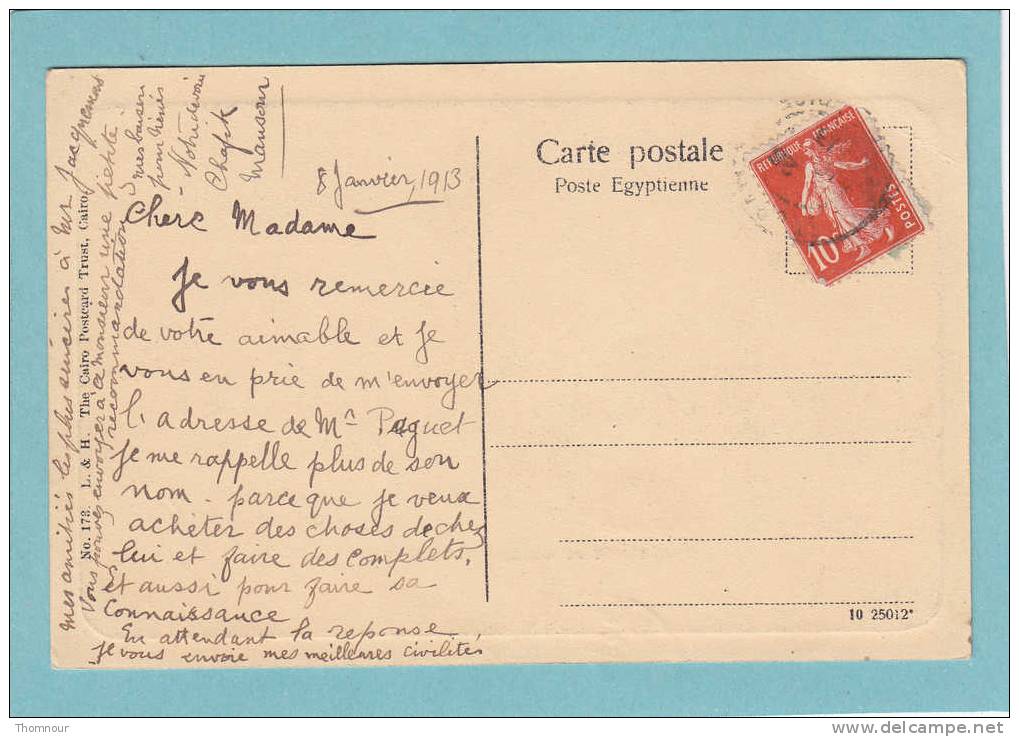 8 Janvier, 1913
Chere Madame
Je vous remercie
de votre aimable et Je
vous en prie de m'envoyer
l'adresse de Mr Paguet
Je me rappelle plus de son
nom - parce que je veux
acheter des choses de chez
lui et faire des complets,
et aussi pour faire sa
Connaissance
En attendant la reponse
Je vous envoie mes meilleures civilités
mes amitiés les plus sincères à Mr Jacquemas
Vous pouvez envoyer à ce monsieur une petite
recommandation
mes baisers
pour
Chafik
Mansour
No. 173. L. & H. The Cairo Postcard Trust, Cairo.
Carte postale
Poste Egyptienne
REPUBLIQUE FRANÇAISE
POSTES
10
10 25012*
Thomnour
www.delcampe.net